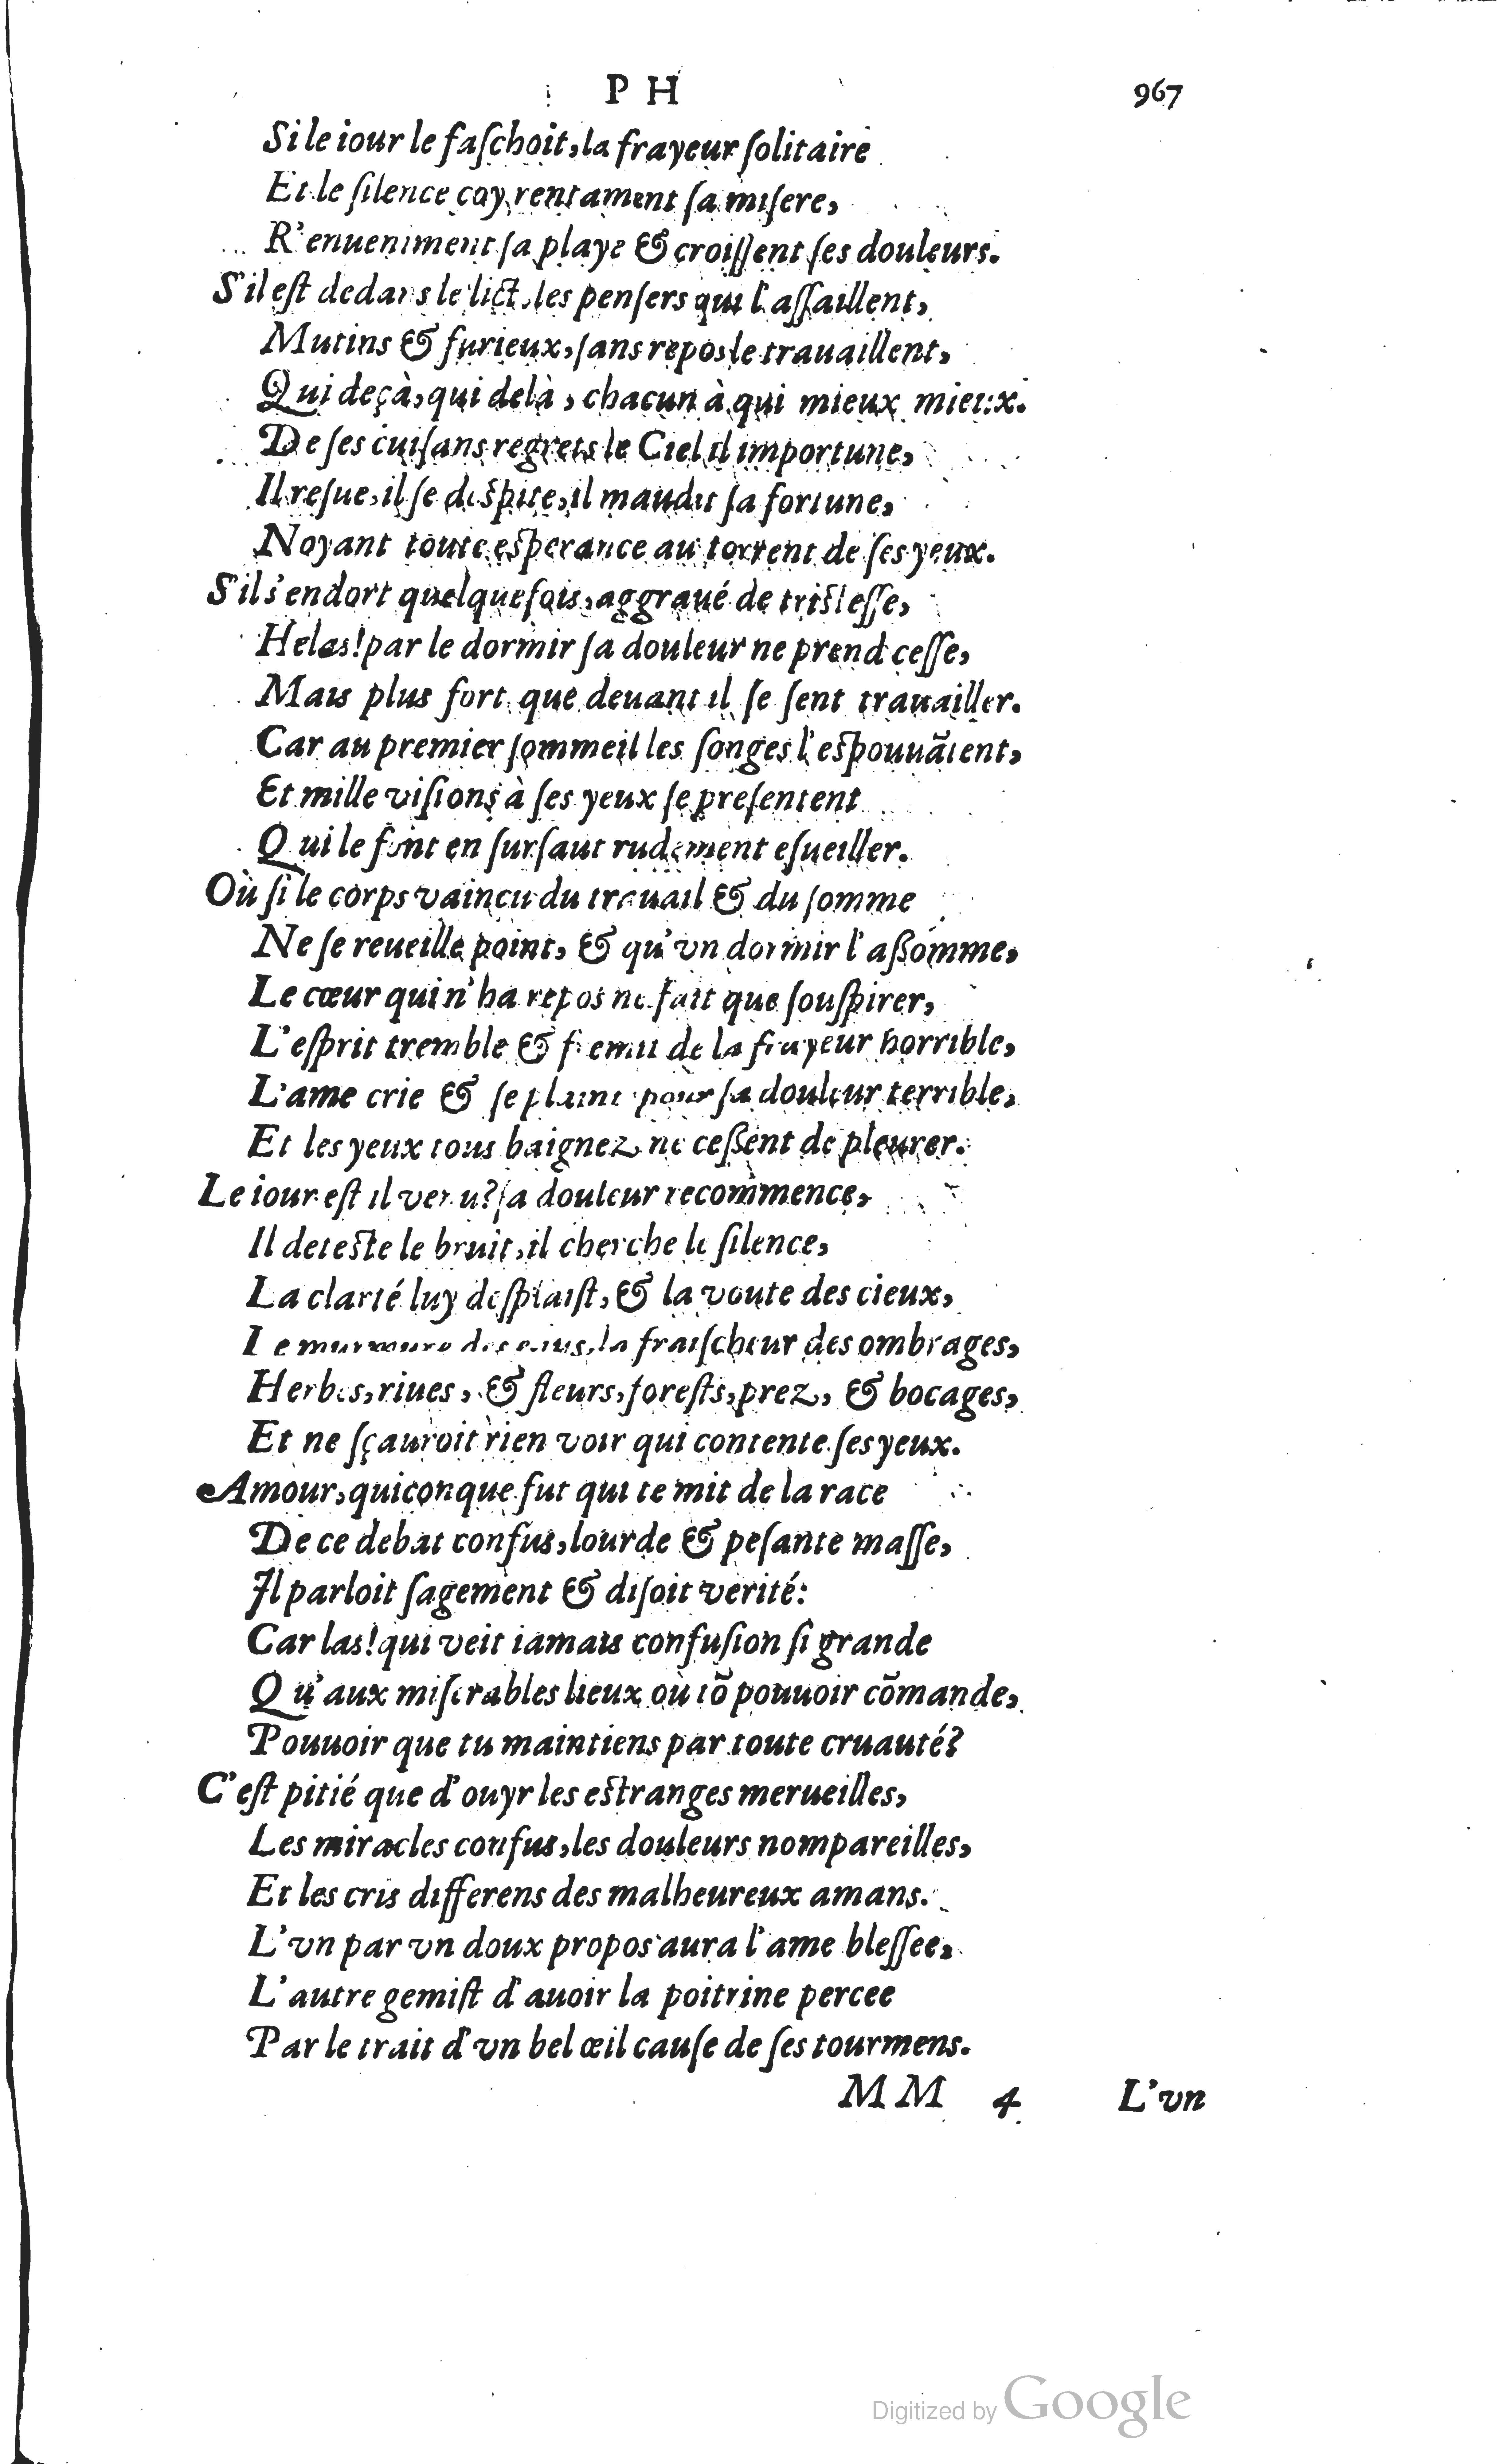 P H 967
Si le iour le faſchoit, la frayeur ſolitaire
Et le ſilence coy rentament ſa miſere,
R'enueniment ſa playe & croiſſent ſes douleurs.
S'il eſt dedans le lict, les penſers qui l'aſſaillent,
Mutins & furieux, ſans repos le trauaillent,
Qui deçà, qui delà, chacun à qui mieux mieux.
De ſes cuiſans regrets le Ciel il importune,
Il reſue, il ſe deſpite, il maudit ſa fortune,
Noyant toute eſperance au torrent de ſes yeux.
S'il s'endort quelquefois, aggraué de triſteſſe,
Helas! par le dormir ſa douleur ne prend ceſſe,
Mais plus fort que deuant il ſe ſent trauailler.
Car au premier ſommeil les ſonges l'eſpouuãtent,
Et mille viſions à ſes yeux ſe preſentent
Qui le font en ſurſaut rudement eſueiller.
Où ſi le corps vaincu du trauail & du ſomme
Ne ſe reueille point, & qu'vn dormir l'aßomme,
Le cœur qui n'ha repos ne fait que ſouſpirer,
L'eſprit tremble & fremit de la frayeur horrible,
L'ame crie & ſe plaint pour ſa douleur terrible,
Et les yeux tous baignez ne ceßent de pleurer.
Le iour eſt il venu? ſa douleur recommence,
Il deteſte le bruit, il cherche le ſilence,
La clarté luy deſplaiſt, & la voute des cieux,
Le murmure des eaus, la fraiſcheur des ombrages,
Herbes, riues, & fleurs, foreſts, prez, & bocages,
Et ne ſçauroit rien voir qui contente ſes yeux.
Amour, quiconque fut qui te mit de la race
De ce debat confus, lourde & peſante maſſe,
Il parloit ſagement & diſoit verité:
Car las! qui veit iamais confuſion ſi grande
Qu'aux miſerables lieux où tõ pouuoir cõmande,
Pouuoir que tu maintiens par toute cruauté?
C'eſt pitié que d'ouyr les eſtranges merueilles,
Les miracles confus, les douleurs nompareilles,
Et les cris differens des malheureux amans.
L'vn par vn doux propos aura l'ame bleſſee,
L'autre gemiſt d'auoir la poitrine percee
Par le trait d'vn bel œil cauſe de ſes tourmens.
MM 4 L'vn
Digitized by Google